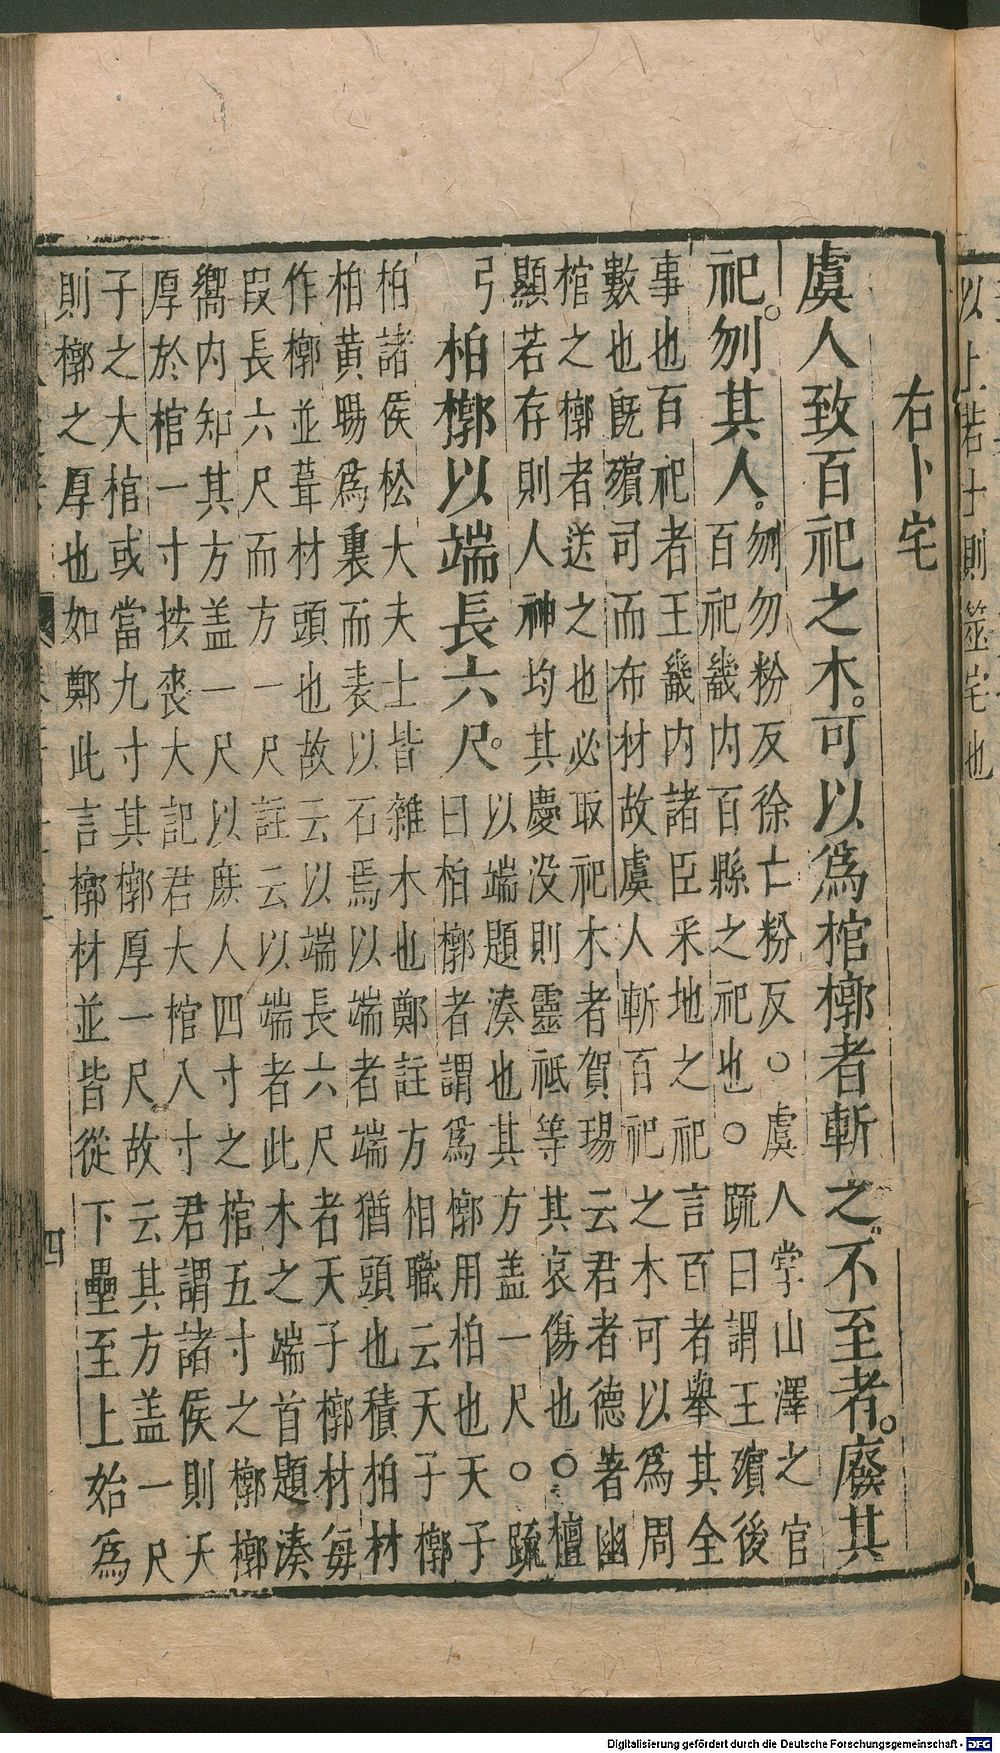 以上若士則筮宅也
右卜宅
虞人致百祀之木。可以爲棺槨者斬之。不至者。廢其
祀。刎其人。
刎勿粉反徐亡粉反○虞人掌山澤之官
百祀畿内百縣之祀也○䟽曰謂王殯後
事也百祀者王畿内諸臣采地之祀言百者舉其全
數也旣殯司而布材故虞人斬百祀之木可以爲周
棺之槨者送之也必取祀木者賀瑒云君者德著幽
顯若存則人神均其慶没則靈祇等其哀傷也○檀
弓 柏槨以端長六尺。
以端題湊也其方盖一尺○䟽
曰柏槨者謂爲槨用柏也天子
柏諸侯松大夫士皆雜木也鄭註方相職云天子槨
柏黃腸爲裏而表以石焉以端者端猶頭也積柏材
作槨並葺材頭也故云以端長六尺者天子槨材每
段長六尺而方一尺註云以端者此木之端首題湊
嚮内知其方盖一尺以庶人四寸之棺五寸之槨槨
厚於棺一寸按喪大記君大棺八寸君謂諸侯則天
子之大棺或當九寸其槨厚一尺故云其方盖一尺
則槨之厚也如鄭此言槨材並皆從下壘至上始爲
四
Digitalisierung gefördert durch die Deutsche Forschungsgemeinschaft - DFG